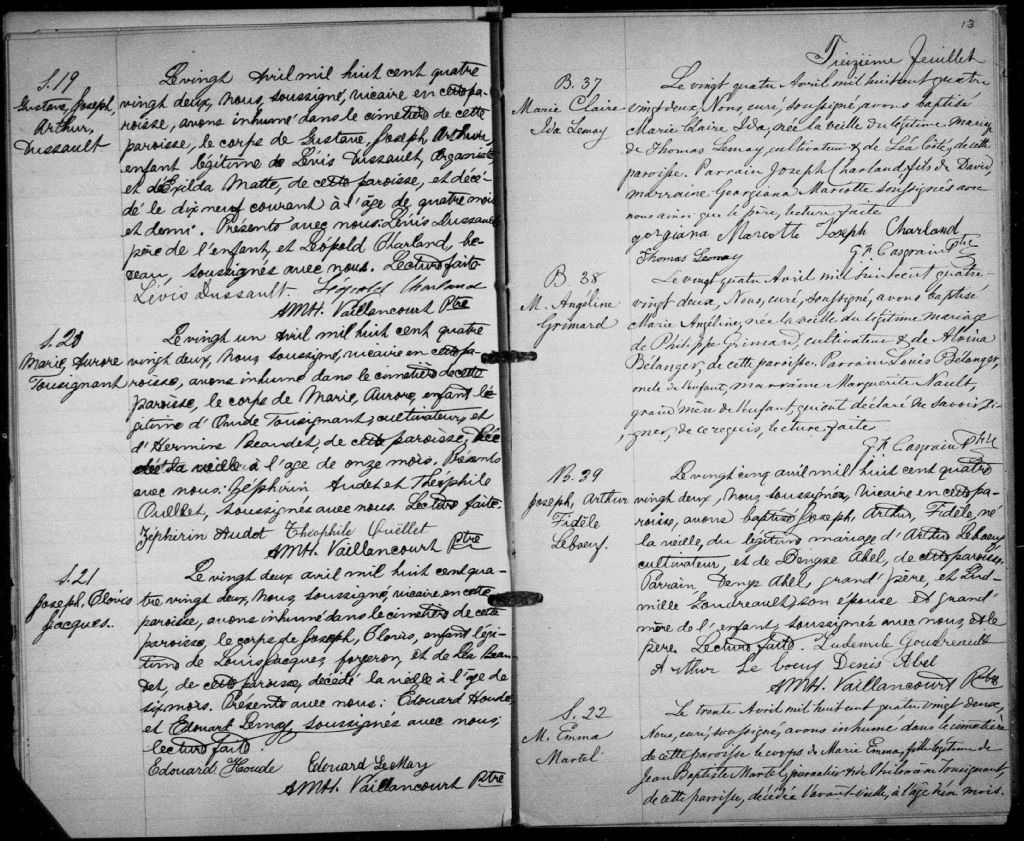 S. 19
Gustave, Joseph,
Arthur,
Dussault
Le vingt Avril mil huit cent quatre
vingt deux, nous, soussigné, vicaire en cette pa-
roisse, avons inhumé dans le cimetière de cette
paroisse, le corps de Gustave, Joseph, Arthur,
enfant légitime de Lévis Dussault, Organiste
et d'Exilda Matte, de cette paroisse, et décé-
dé le dix neuf courant à l'âge de quatre mois
et demi. Présents avec nous: Lévis Dussault
père de l'enfant, et Léopold Charland, be-
deau, soussignés avec nous. Lecture faite
Lévis Dussault. Léopold Charland
AMH. Vaillancourt Ptre
S. 20
Marie, Aurore
Tousignant
Le vingt un avril mil huit cent quatre
vingt deux, nous, soussigné, vicaire en cette pa-
roisse, avons inhumé dans le cimetière de cette
paroisse, le corps de Marie, Aurore, enfant lé-
gitime d' Tousignant, cultivateur, et
d'Hermine Beaudet, de cette paroisse, décé-
dée la veille à l'age de onze mois. Présents
avec nous: Zéphirin Audet et Théophile
Ouellet, soussignés avec nous. Lecture faite.
Zéphirin Audet Theophile Ouellet
AMH. Vaillancourt Ptre
S. 21
Joseph, Clovis
Jacques.
Le vingt deux avril mil huit cent qua-
tre vingt deux, nous, soussigné, vicaire en cette
paroisse, avons inhumé dans le cimetière de cette
paroisse, le corps de Joseph, Clovis, enfant légi-
time de Louis Jacques, forgeron, et de Léa Beau-
det, de cette paroisse, décédé la veille à l'age de
six mois. Présents avec nous: Edouard Houde,
et Edouard Lemay, soussignés avec nous;
lecture faite.
Edouard Houde Edouard LeMay
AMH. Vaillancourt Ptre
13
Treizième feuillet
B. 37
Marie Claire
Ida Lemay
Le vingt quatre Avril mil huit cent quatre
vingt deux, Nous, curé, soussigné, avons baptisé
Marie Claire Ida, née la veille du légitime mariage
de Thomas Lemay, cultivateur & de Léa Côté, de cette
paroisse. Parrain Joseph Charland fils de David,
marraine Georgiana Marcotte soussignés avec
nous ainsi que le père, lecture faite
gorgiana Marcotte Joseph Charland
Thomas Lemay G. Casgrain Ptre
B 38
M. Angéline
Grimard
Le vingt quatre Avril mil huit cent quatre
vingt deux, Nous, curé, soussigné, avons baptisé
Marie Angéline, née la veille du légitime mariage
de Philippe Grimard, cultivateur & de Alvina
Bélanger, de cette paroisse. Parrain Louis Bélanger,
oncle de l'enfant, marraine Marguerite Nault,
grand'mère de l'enfant, qui ont déclaré ne savoir si-
gner, de ce requis, lecture faite
G. Casgrain Ptre
B. 39
Joseph, Arthur
Fidèle
Leboeuf.
Le vingt cinq avril mil huit cent quatre
vingt deux, nous, soussigné, Vicaire en cette pa-
roisse, avons baptisé Joseph, Arthur, Fidèle, né
la veille, du légitime mariage d'Arthur Leboeuf
cultivateur, et de Abel, de cette paroisse.
Parrain, Denys Abel, grand'père, et Lud-
mille Goudreault, son epouse et grand'
mère de l'enfant, soussignés avec nous et le
père. Lecture faite. Ludemile Goudreault
Arthur Le boeuf Denis Abel
AMH. Vaillancourt Ptre
S. 22
M. Emma
Martel
Le trente Avril mil huit cent quatre vingt deux,
Nous, curé, soussigné, avons inhumé dans le cimetière
de cette paroisse le corps de Marie Emma, fille légitime de
Jean Baptiste Martel journalier & de Philomène Tousignant,
de cette paroisse, décédée l'avant veille, à l'âge d'un mois.